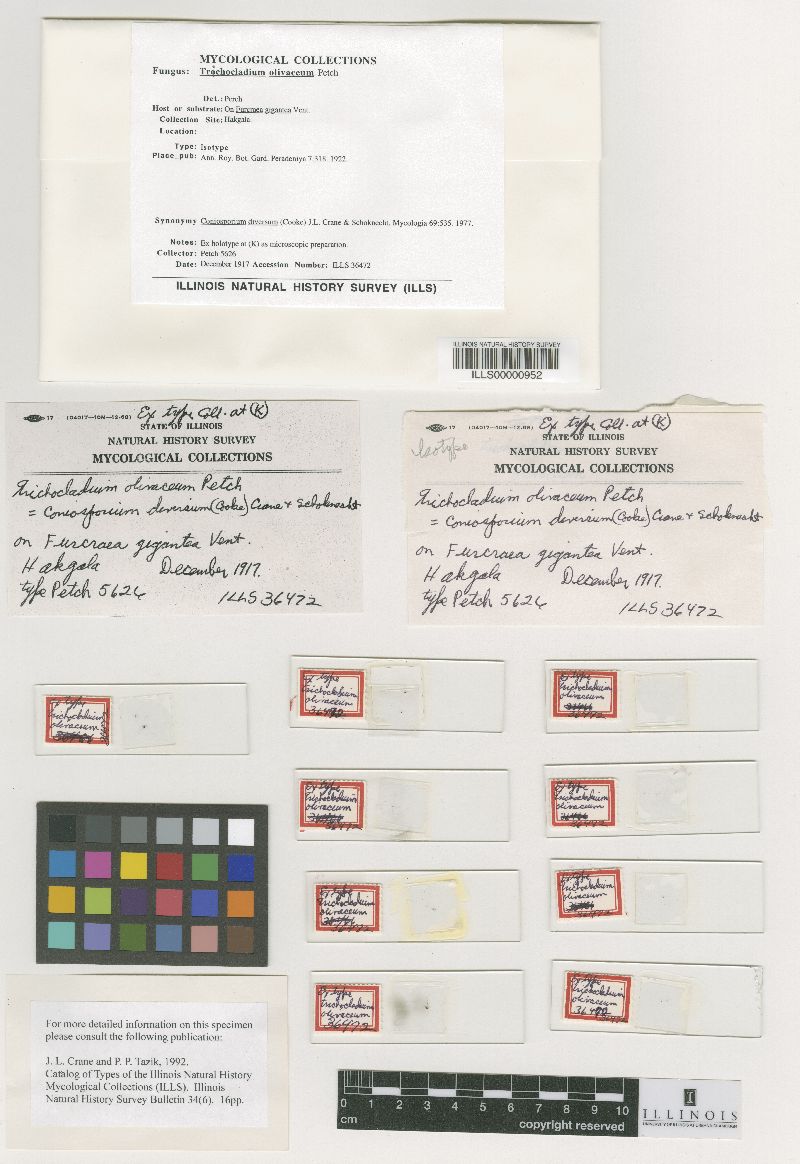 MYCOLOGICAL COLLECTIONS
Fungus: Trichocladium olivaceum Petch
Det.: Petch
Host or substrate: On Furcraea gigantea Vent.
Collection Site: Hakgala
Location:
Type: Isotype
Place_pub: Ann. Roy. Bot. Gard. Peradeniya 7:318. 1922.
Synonymy Coniosporium diversum (Cooke) J.L. Crane & Schoknecht. Mycologia 69:535. 1977.
Notes: Ex holotype at (K) as microscopic preparation.
Collector: Petch 5626
Date: December 1917 Accession Number: ILLS 36472
ILLINOIS NATURAL HISTORY SURVEY (ILLS)
ILLINOIS NATURAL HISTORY SURVEY
ILLS00000952
17 (04017—10M—12-68) Ex type Coll. at (K)
STATE OF ILLINOIS
NATURAL HISTORY SURVEY
MYCOLOGICAL COLLECTIONS
Trichocladium olivaceum Petch
= Coniosporium diversum (Cooke) Crane & Schoknecht
on Furcraea gigantea Vent.
Hakgala December 1917.
type Petch 5626
ILLS 36472
17 (04017—10M—12-68) Ex type Coll. at (K)
Isotype
STATE OF ILLINOIS
NATURAL HISTORY SURVEY
MYCOLOGICAL COLLECTIONS
Trichocladium olivaceum Petch
= Coniosporium diversum (Cooke) Crane & Schoknecht
on Furcraea gigantea Vent.
Hakgala December 1917.
type Petch 5626
ILLS 36472
Ex type
Trichocladium
olivaceum
Ex type
Trichocladium
olivaceum
36472
Ex type
Trichocladium
olivaceum
36472
Ex type
Trichocladium
olivaceum
36472
Ex type
Trichocladium
olivaceum
36472
Ex type
Trichocladium
olivaceum
36472
Ex type
Trichocladium
olivaceum
36472
Ex type
Trichocladium
olivaceum
36472
Ex type
Trichocladium
olivaceum
36472
For more detailed information on this specimen
please consult the following publication:
J. L. Crane and P. P. Tazik, 1992.
Catalog of Types of the Illinois Natural History
Mycological Collections (ILLS). Illinois
Natural History Survey Bulletin 34(6). 16pp.
0 1 2 3 4 5 6 7 8 9 10
cm
copyright reserved
I
ILLINOIS
UNIVERSITY OF ILLINOIS AT URBANA-CHAMPAIGN